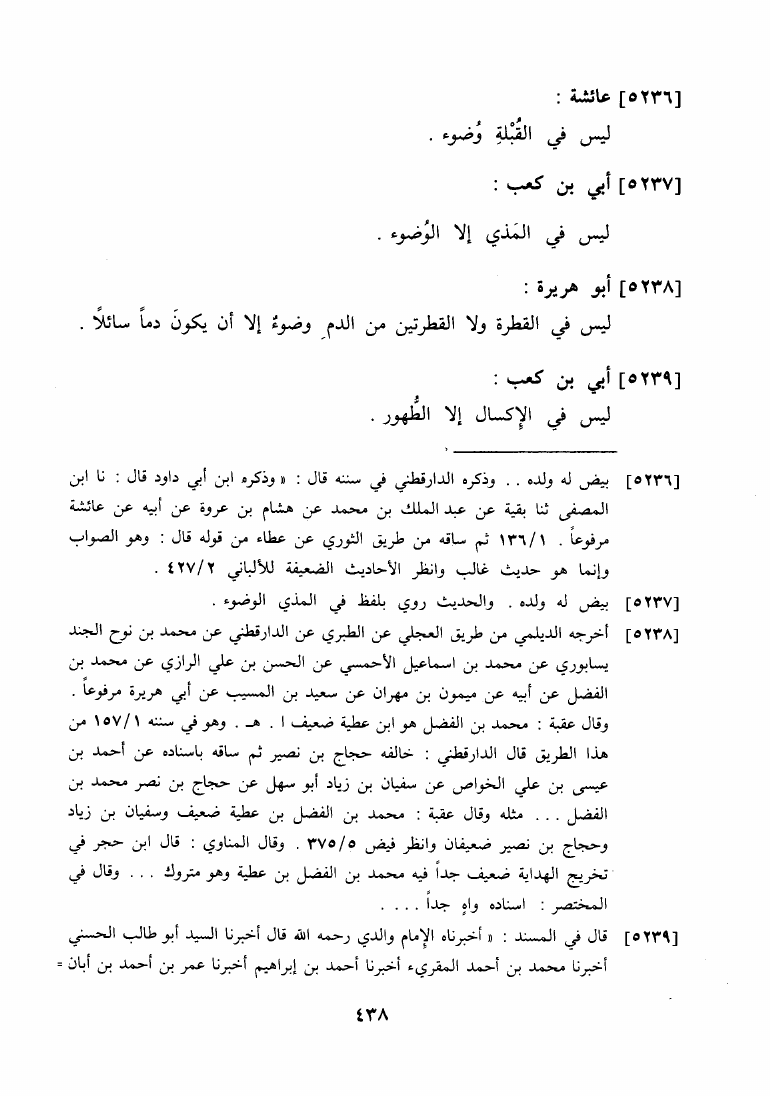 [٥٢٣٦] عائشة :
ليس في القُبْلةِ وُضوء .
[٥٢٣٧] أبي بن كعب :
ليس في المَذي إلا الوُضوء .
[٥٢٣٨] أبو هريرة :
ليس في القطرة ولا القطرتين من الدمِ وضوءٌ إلا أن يكونَ دماً سائلاً .
[٥٢٣٩] أبي بن كعب :
ليس في الإكسال إلا الطُّهور .
[٥٢٣٦] بيض له ولده . . وذكره الدارقطني في سننه قال : « وذكره ابن أبي داود قال : نا ابن
المصفى ثنا بقية عن عبد الملك بن محمد عن هشام بن عروة عن أبيه عن عائشة
مرفوعاً . ١٣٦/١ ثم ساقه من طريق الثوري عن عطاء من قوله قال : وهو الصواب
وإنما هو حديث غالب وانظر الأحاديث الضعيفة للألباني ٤٢٧/٢ .
[٥٢٣٧] بيض له ولده . والحديث روي بلفظ في المذي الوضوء .
[٥٢٣٨] أخرجه الديلمي من طريق العجلي عن الطبري عن الدارقطني عن محمد بن نوح الجند
يسابوري عن محمد بن اسماعيل الأحمسي عن الحسن بن علي الرازي عن محمد بن
الفضل عن أبيه عن ميمون بن مهران عن سعيد بن المسيب عن أبي هريرة مرفوعاً .
وقال عقبة : محمد بن الفضل هو ابن عطية ضعيف ا . هـ . وهو في سننه ١٥٧/١ من
هذا الطريق قال الدارقطني : خالفه حجاج بن نصير ثم ساقه باسناده عن أحمد بن
عيسى بن علي الخواص عن سفيان بن زياد أبو سهل عن حجاج بن نصر محمد بن
الفضل ... مثله وقال عقبة : محمد بن الفضل بن عطية ضعيف وسفيان بن زياد
وحجاج بن نصير ضعيفان وانظر فيض ٣٧٥/٥ . وقال المناوي : قال ابن حجر في
تخريج الهداية ضعيف جداً فيه محمد بن الفضل بن عطية وهو متروك ... وقال في
المختصر : اسناده واهٍ جداً ....
[٥٢٣٩] قال في المسند : « أخبرناه الإمام والدي رحمه الله قال أخبرنا السيد أبو طالب الحسني
أخبرنا محمد بن أحمد المقريء أخبرنا أحمد بن إبراهيم أخبرنا عمر بن أحمد بن أبان =
٤٣٨